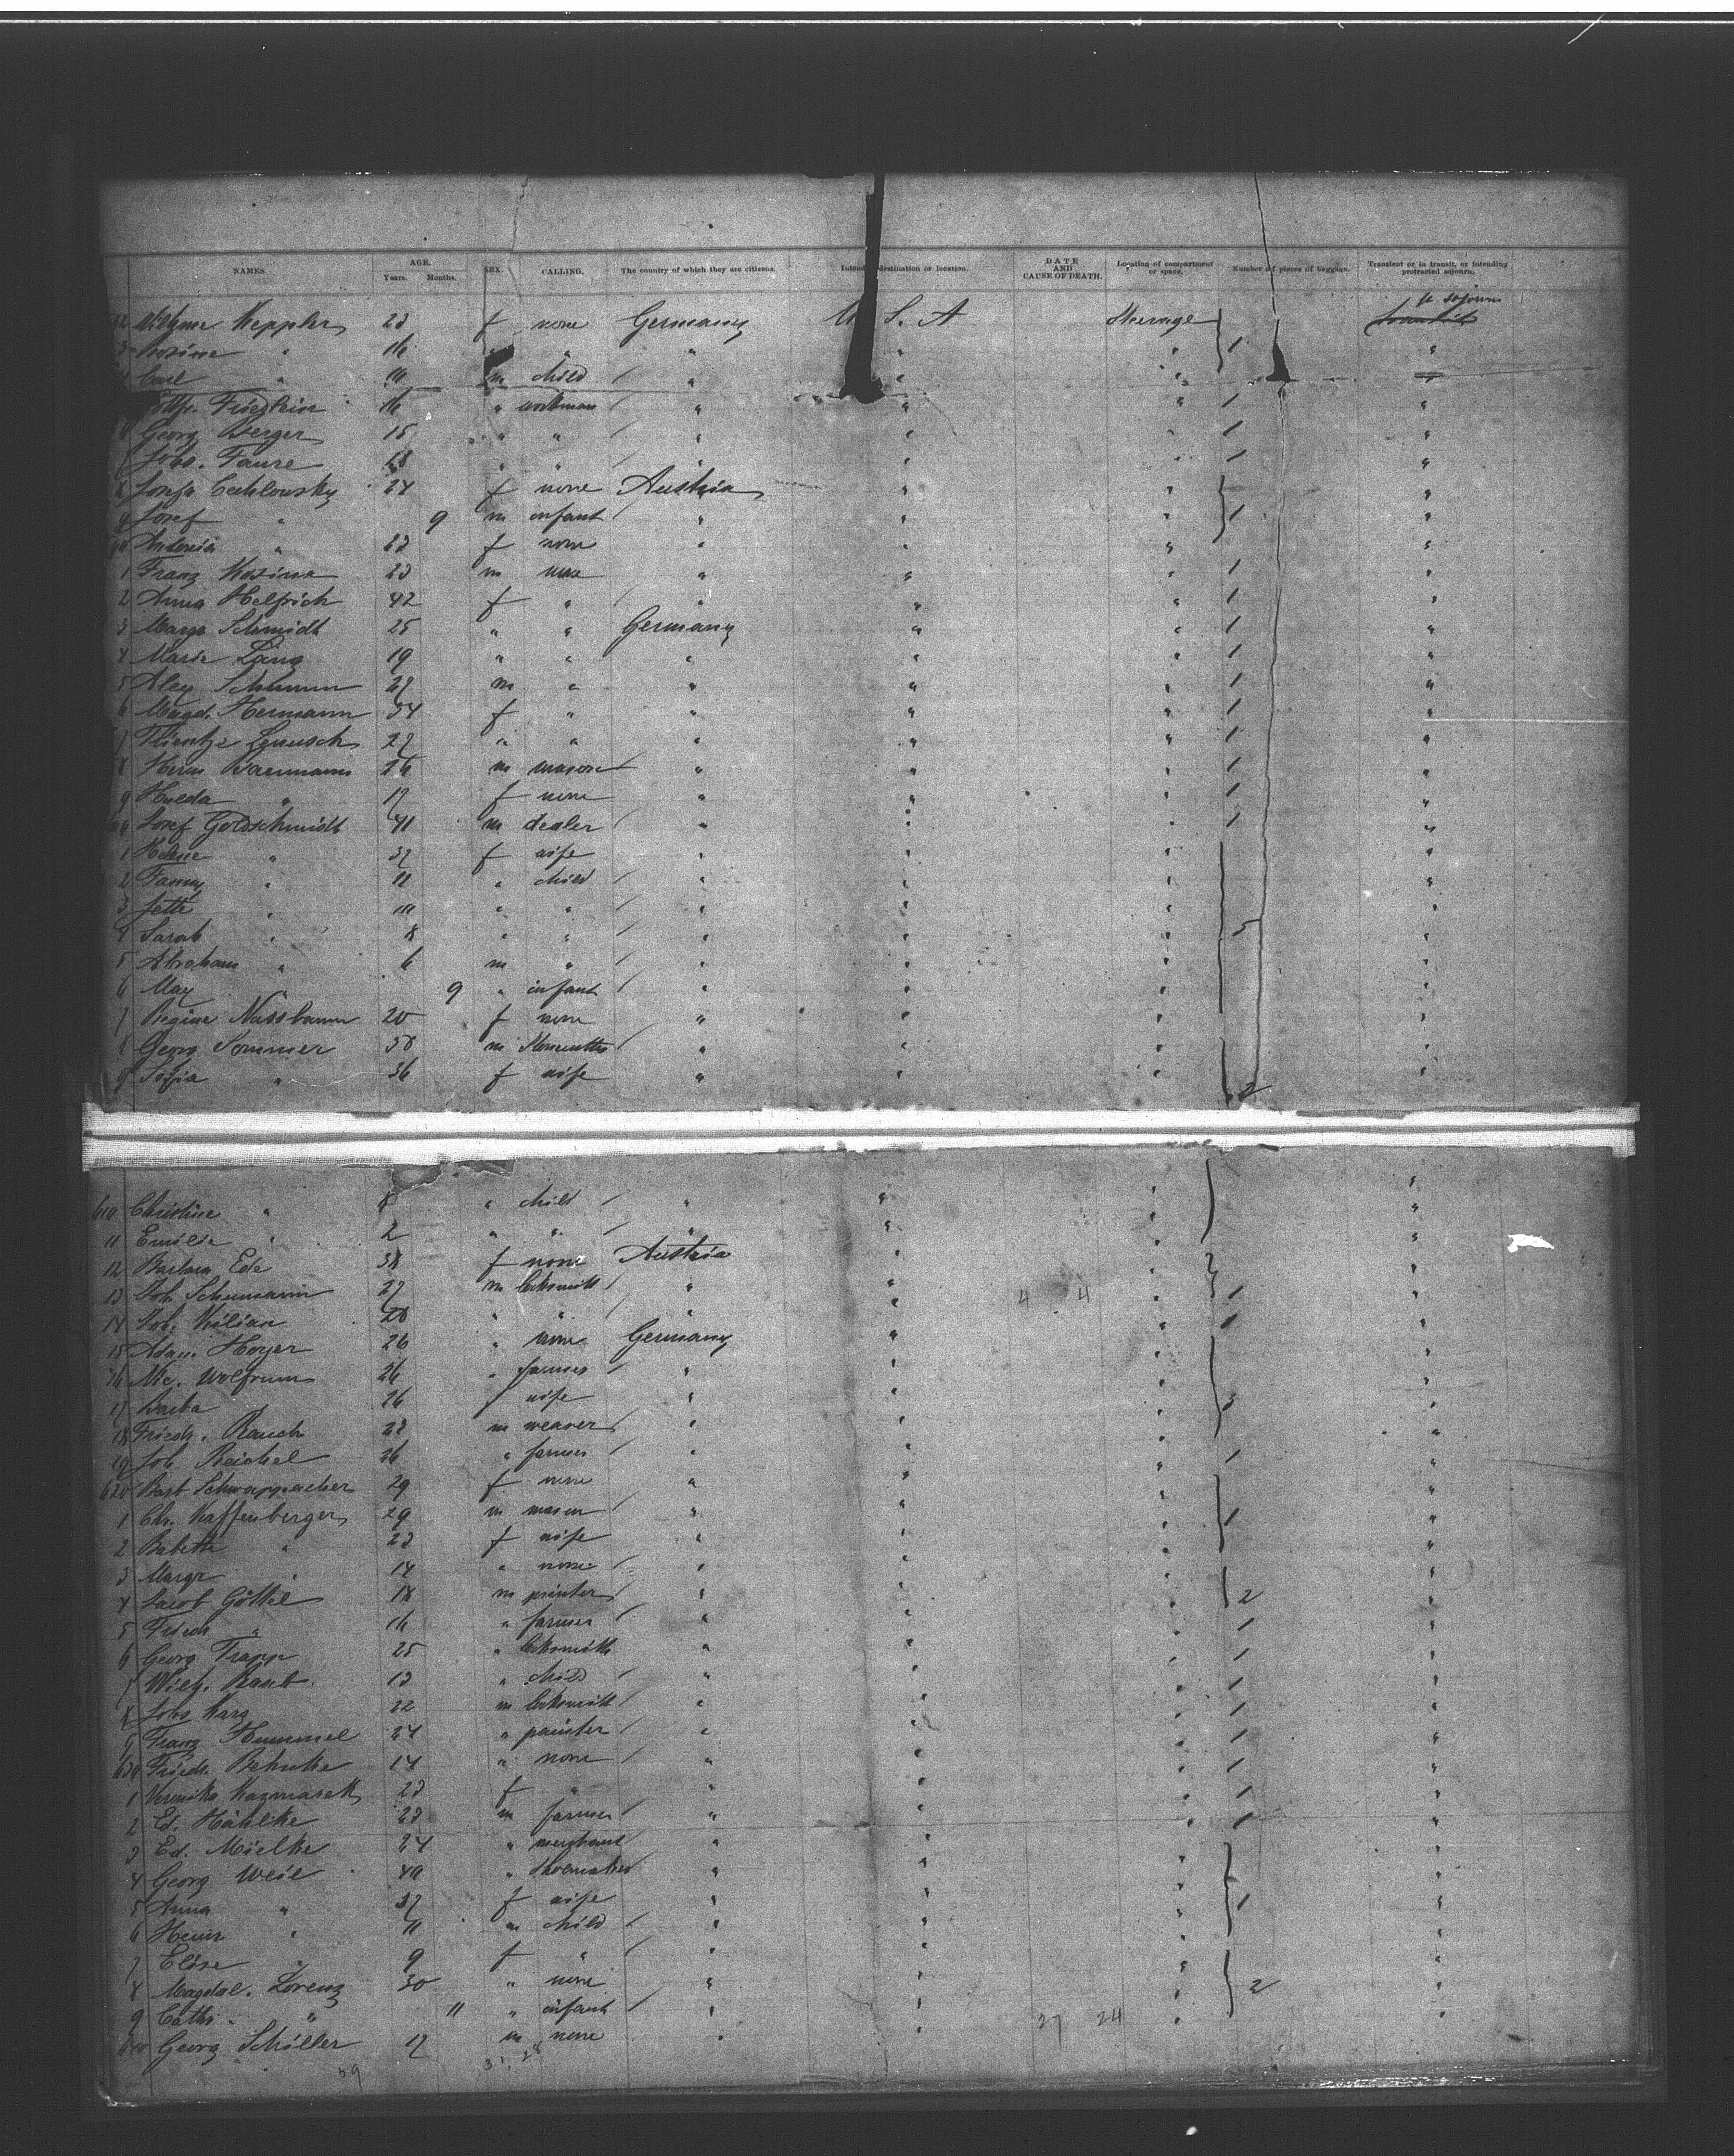 NAMES. AGE. Years. Months. SEX. CALLING. The country of which they are citizens. Intended destination or location. DATE AND CAUSE OF DEATH. Location of compartment or space. Number of pieces of baggage. Transient or in transit, or intending protracted sojourn.
Keppler 23 f none Germany U. S. A Steerage sojourn
Rosine " 16 " " " " " 1 "
Carl " m child / " " " "
Friedlein 16 " workman / " " " 1 "
Georg Berger 15 " " / " " " 1 "
Johs. Faure 18 " " / " " " 1 "
Josefa Cechlowsky 24 f none Austria " " "
Josef " 9 m infant / " " " 1 "
Antonia " 23 f none " " " "
Franz Kosina 23 m none " " " 1 "
2 Anna Helfrich 42 f " " " " 1 "
3 Margr. Schmidt 25 " " Germany " " 1 "
4 Marie Lang 19 " " " " " 1 "
5 Alex Schumm 27 m " " " " 1 "
6 Magd. Hermann 54 f " " " " 1 "
7 27 " " " " " 1 "
8 Herm 26 m mason / " " " 1 "
9 Hulda " 17 f none " " " 1 "
Josef Goldschmidt 41 m dealer / " " " 1 "
1 Helene " 37 f wife " " " "
2 Fanny " 11 " child / " " " "
3 Jette " " " / " " " "
4 Sarah " 8 " " / " " " 5 "
5 Abraham " 6 m " / " " " "
6 Max 9 " infant / " " " "
7 Regine Nussbaum 20 f none " " " "
8 Georg Sommer 38 m Stonecutter / " " " "
9 Sofia " 36 f wife " " " 2 "
610 Christine " 8 " child / " " " "
11 Emilie " 2 " " / " " " "
12 Barbara Ede 38 f none Austria " " "
13 Joh. Schumann 27 m locksmith / " " 4 4 " 1 "
14 Joh. Kilian 28 " " / " " " 1 "
15 Adam Hoyer 26 " none Germany " " "
16 Nic. Wolfrum 26 " farmer / " " " "
17 Barba " 26 f wife " " " 3 "
18 Friedr. Rauch 22 m weaver / " " " "
19 Joh. Reichel 26 " farmer / " " " 1 "
620 Barb Schwappacher 29 f none " " " "
1 Chr. Kaffenberger 29 m mason / " " " 1 "
2 Babette " 23 f wife " " " "
3 Margr " 14 " none / " " " "
4 Jacob Göttel 18 m printer / " " " 2 "
5 Friedr " 16 " farmer / " " " 1 "
6 Georg Trapp 25 " locksmith " " " 1 "
7 Raub 13 " child / " " " 1 "
8 Johs Karg 22 m locksmith / " " " 1 "
9 Franz Hummel 24 " painter / " " " 1 "
630 Friedr. Behnke 14 " none / " " " 1 "
1 Veronika Kazmarek 23 f " " " " 1 "
2 Ed. Hählke 23 m farmer / " " " 1 "
3 Ed. Mielke 24 " merchant / " " " "
4 Georg Weil 40 " Shoemaker / " " " "
5 Anna " 37 f wife " " " 1 "
6 Heinr " 11 m child / " " " "
7 Elise " 9 f " / " " " "
8 Magdal. Lorenz 30 " none " " " 2 "
9 Cath. " 11 " infant / " " 27 24 " "
640 Georg Schiller 17 m none " " "
59